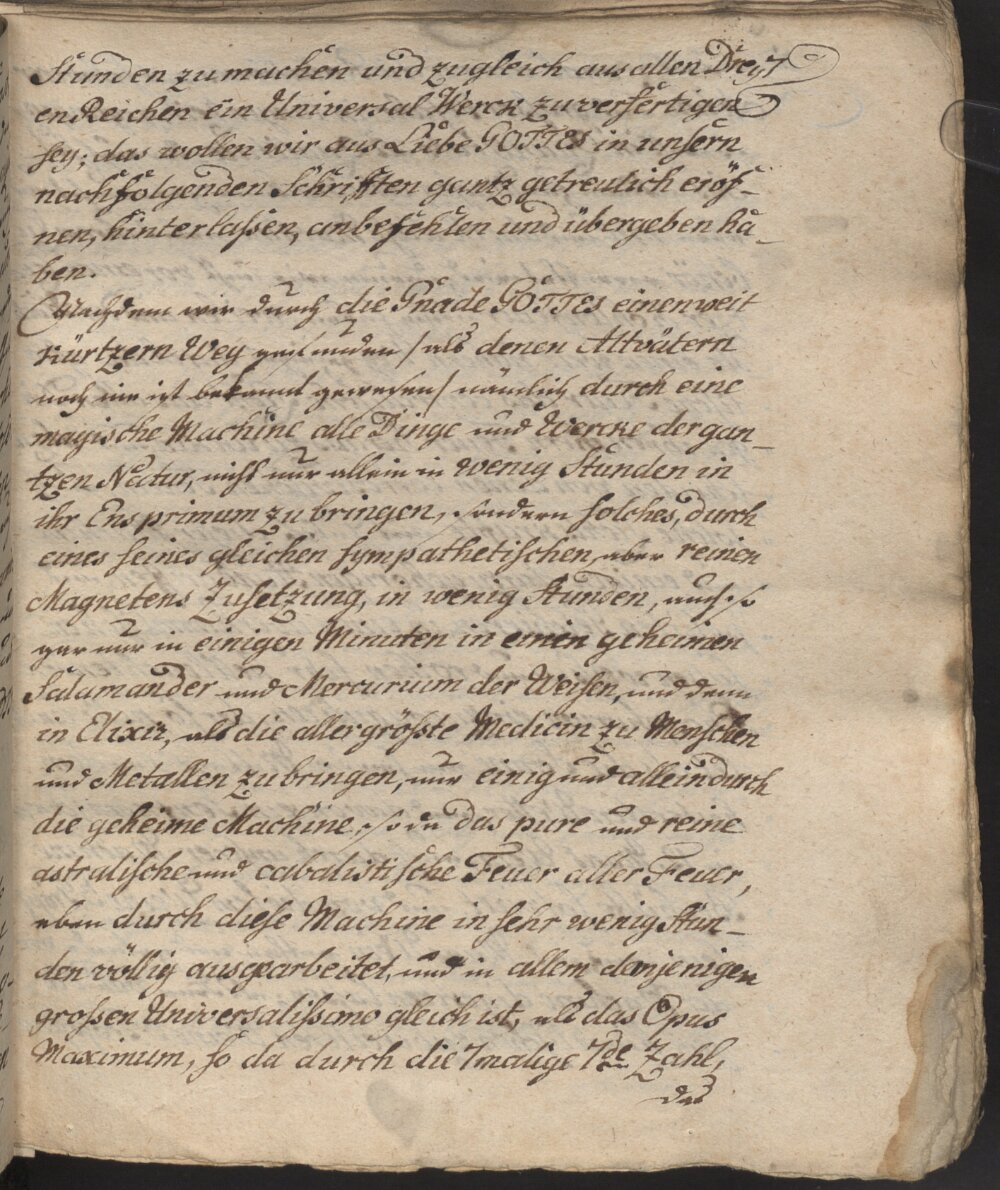 Stunden zu machen und zugleich aus allen Drey
en Reichen ein Universal Werck zu verfertigen
sey; das wollen wir aus Liebe GOTTES in unsern
nachfolgenden Schrifften gantz getreulich eröf-
nen, hinterlaßen, anbefehlen und übergeben ha-
ben.
Nachdem wir durch die Gnade GOTTES einen weit
kürtzern Weg gefunden / als denen Altvätern
noch nie ist bekannt gewesen / nämlich durch eine
magische Machine alle Dinge und Wercke der gan-
tzen Natur, nicht nur allein in wenig Stunden in
ihr Ens primum zu bringen, sondern solches, durch
eines seines gleichen sympathetischen, aber reinen
Magnetens Zusetzung, in wenig Stunden, auch so
gar nur in einigen Minuten in einen geheimen
Salamander und Mercurium der Weisen, und denn
in Elixir, als die allergröste Medicin zu Menschen
und Metallen zu bringen, nur einig und allein durch
die geheime Machine, so da das pure und reine
astralische und cabalistische Feuer aller Feuer,
eben durch diese Machine in sehr wenig Stun-
den völlig ausgearbeitet, und in allem demjenigen
großen Universalißimo gleich ist, als das Opus
Maximum, so da durch die 7malige 7de Zahl,
das